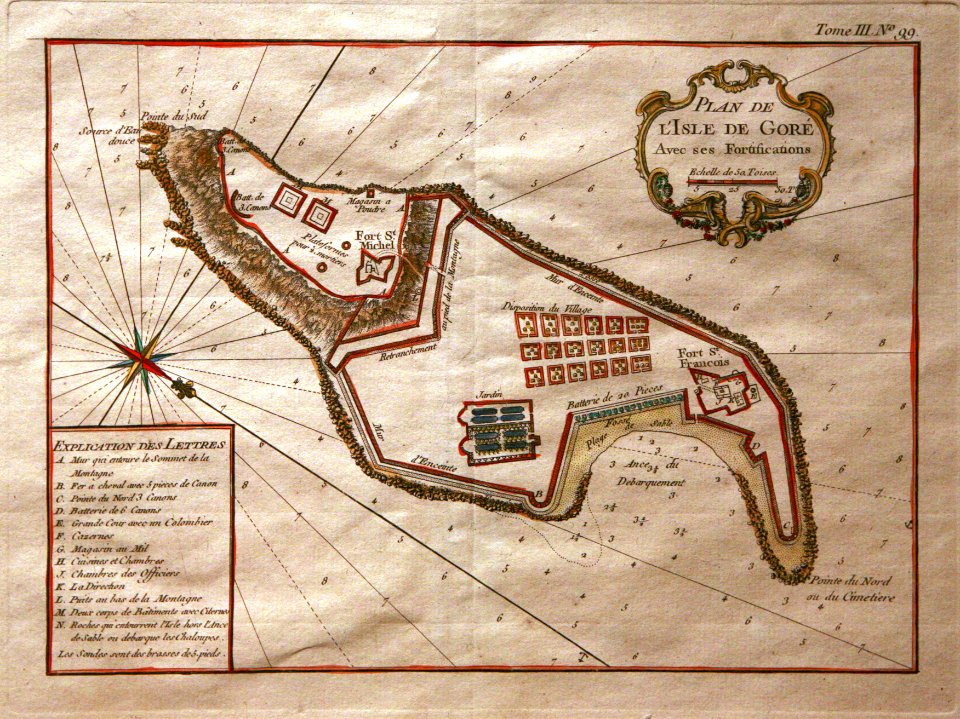 Tome III. No. 99.
PLAN DE
L'ISLE DE GORÉ
Avec ses Fortifications
Echelle de 50 Toises.
5 25 50 T.
Pointe du Sud
Source d'Eau
douce
Batt. de
3. Canons
A
Batt. de
3. Canons
M
Magasin a
Poudre
A
Plateformes
pour 2. mortiers
Fort St.
Michel
Mur d'Enceinte
au pied de la Montagne
Retranchement
Disposition du Village
Fort St.
Francois
Jardin
Batterie de 20 Pieces
Fosse de Sable
Plage
Ance du
Debarquement
Mur
d'Enceinte
B
D
C
Pointe du Nord
ou du Cimetiere
EXPLICATION DES LETTRES
A Mur qui entoure le Sommet de la
Montagne
B. Fer a cheval avec 5 pieces de Canon
C. Pointe du Nord 3 Canons
D. Batterie de 6 Canons
E. Grande Cour avec un Colombier
F. Cazernes
G. Magasin au Mil
H. Cuisines et Chambres
J. Chambres des Officiers
K. La Direction
L. Puits au bas de la Montagne
M. Deux corps de Bâtiments avec Citernes
N. Roches qui entourrent l'Isle hors l'Ance
de Sable ou debarque les Chaloupes.
Les Sondes sont des brasses de 5. pieds.